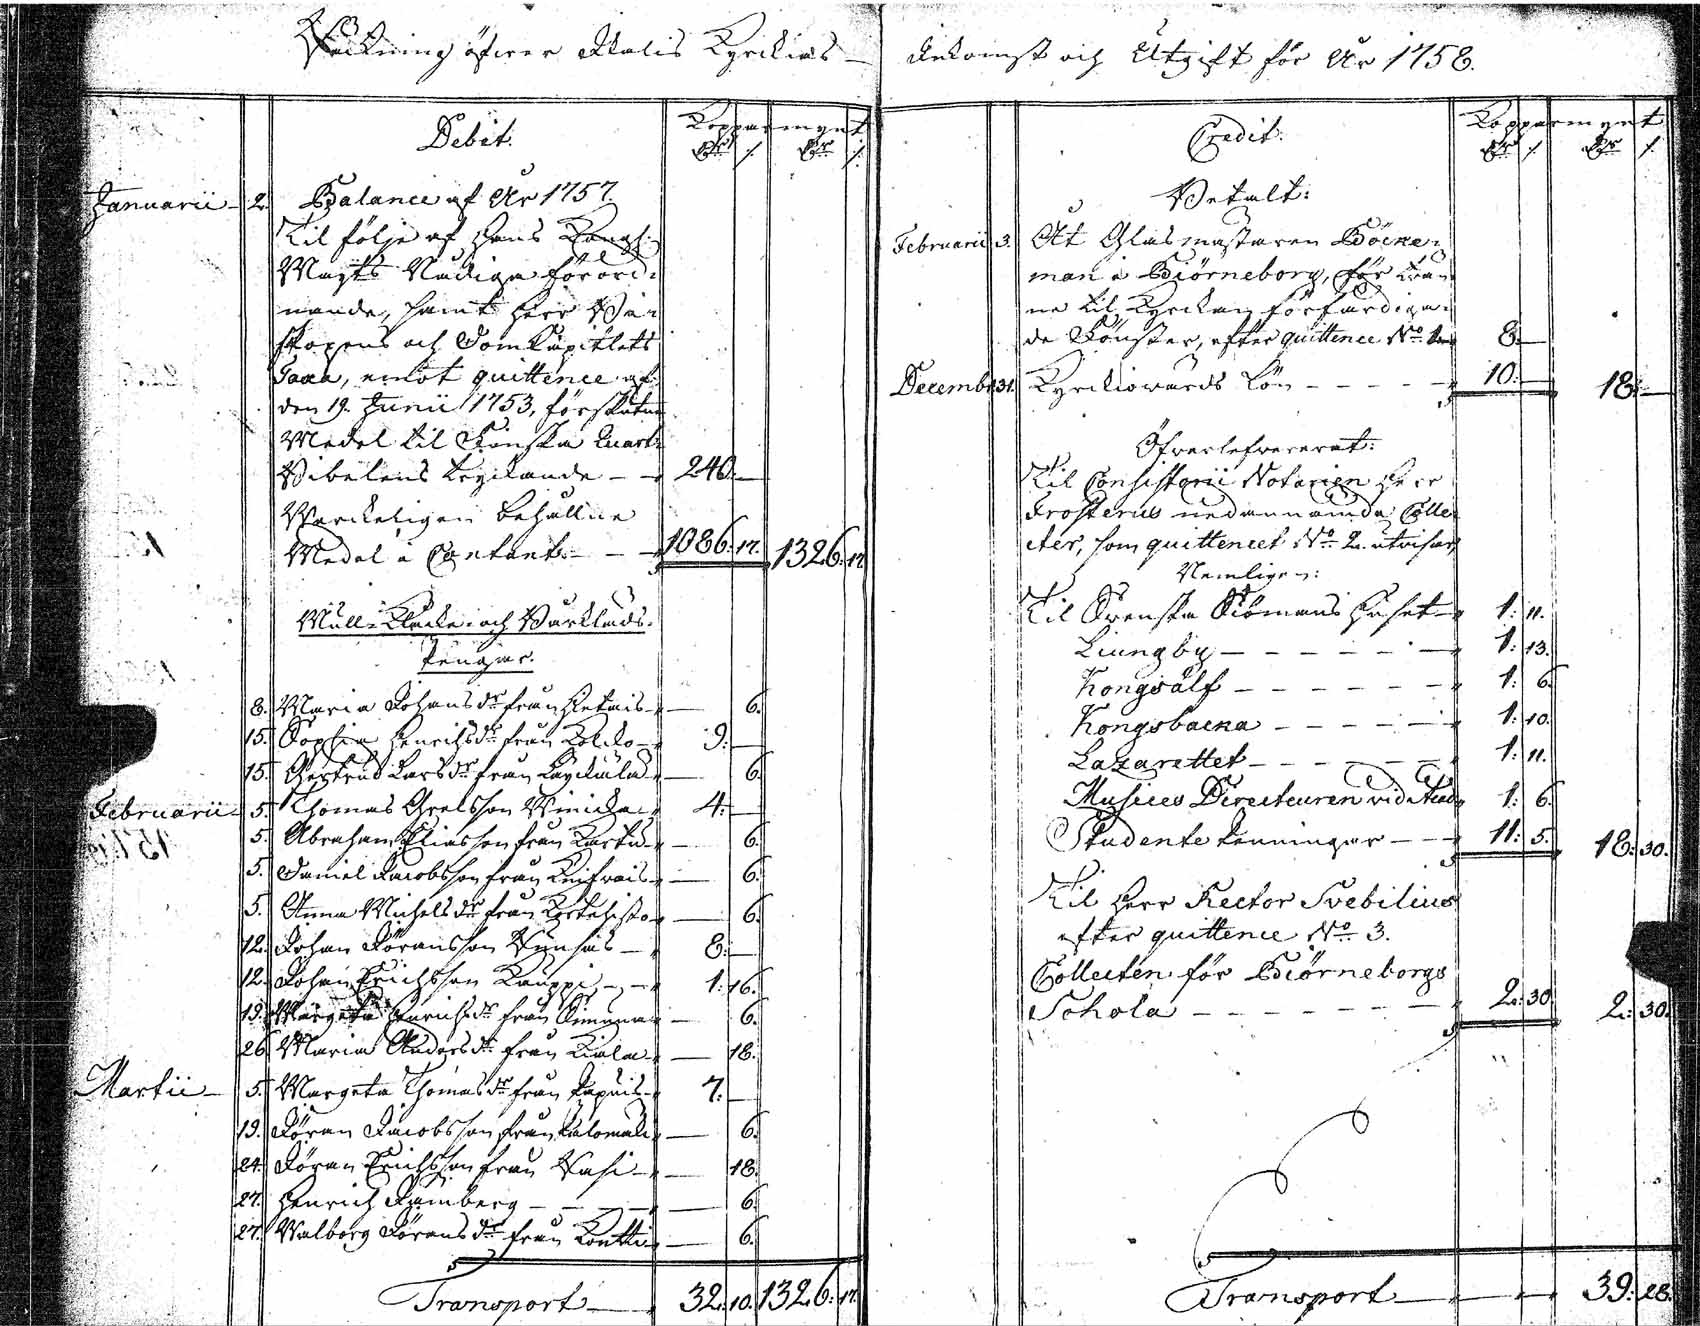 Räkning öfwer Ikalis Kyrkias
Debet.
Kopparmynt
Dlr /. Dlr /.
Januarii 2. Balance af År 1757.
Til följe af Hans Kongl:
Mayts Nådiga förord-
nande, samt Herr Bi-
skopens och DomCapitlets
Taxa, emot quittence af
den 19. Junii 1753, förskutne
Medel til Finska Quart
Bibelens tryckande 240.
Werckeligen behållne
Medel i Contant 1086. 17. 1326. 17.
Mull- Klocke- och Bårklæds-
Pengar.
8. Maria Johans dr från 6.
15. Sophia Henrichs dr från 9.
15. Gertrud Lars dr från 6.
Februarii 5. Thomas 4.
5. Abraham Eliasson från 6.
5. Daniel Jacobsson från 6.
5. Anna Michels dr från 6.
12. Johan Göransson 8.
12. Johan Erichsson Kauppi 1. 16.
19. Margeta Henrichs dr från 6.
26. Maria Anders dr från 18.
Martii 5. Margeta Thomas dr från 7.
19. Göran Jacobsson från 6.
24. Göran Erichsson från 18.
27. Henrich 6.
27. Walborg Görans dr från Kontti 6.
Transport 32. 10. 1326. 17.
Inkomst och Utgift för År 1758.
Credit.
Kopparmynt
Dlr /. Dlr /.
Betalt:
Februarii 3. Åt Glasmästaren Böcker-
man i Biörneborg, för
ne til Kyrckan förfärdiga-
de Fönster, efter quittence No 8.
Decembr 31. Kyrckiowärds Lön 10. 18.
Öfwerlefwererat:
Til Consistorii Notarien Herr
Frosterus nedannämde Colle-
cter, som quittencet No 2. utwisar,
Nemligen:
Til Svenska Siömans Huset 1. 11.
Liungby 1. 13.
Kongsälf 1. 6.
Kongsbacka 1. 10.
Lazarettet 1. 11.
Musices Directeuren vid Acad 1. 6.
Studente Penningar 11. 5. 18. 30.
Til Herr Rector Svebilius
efter quittence No 3.
Collecten för Biörneborgs
Schola 2. 30. 2. 30.
Transport 39. 28.